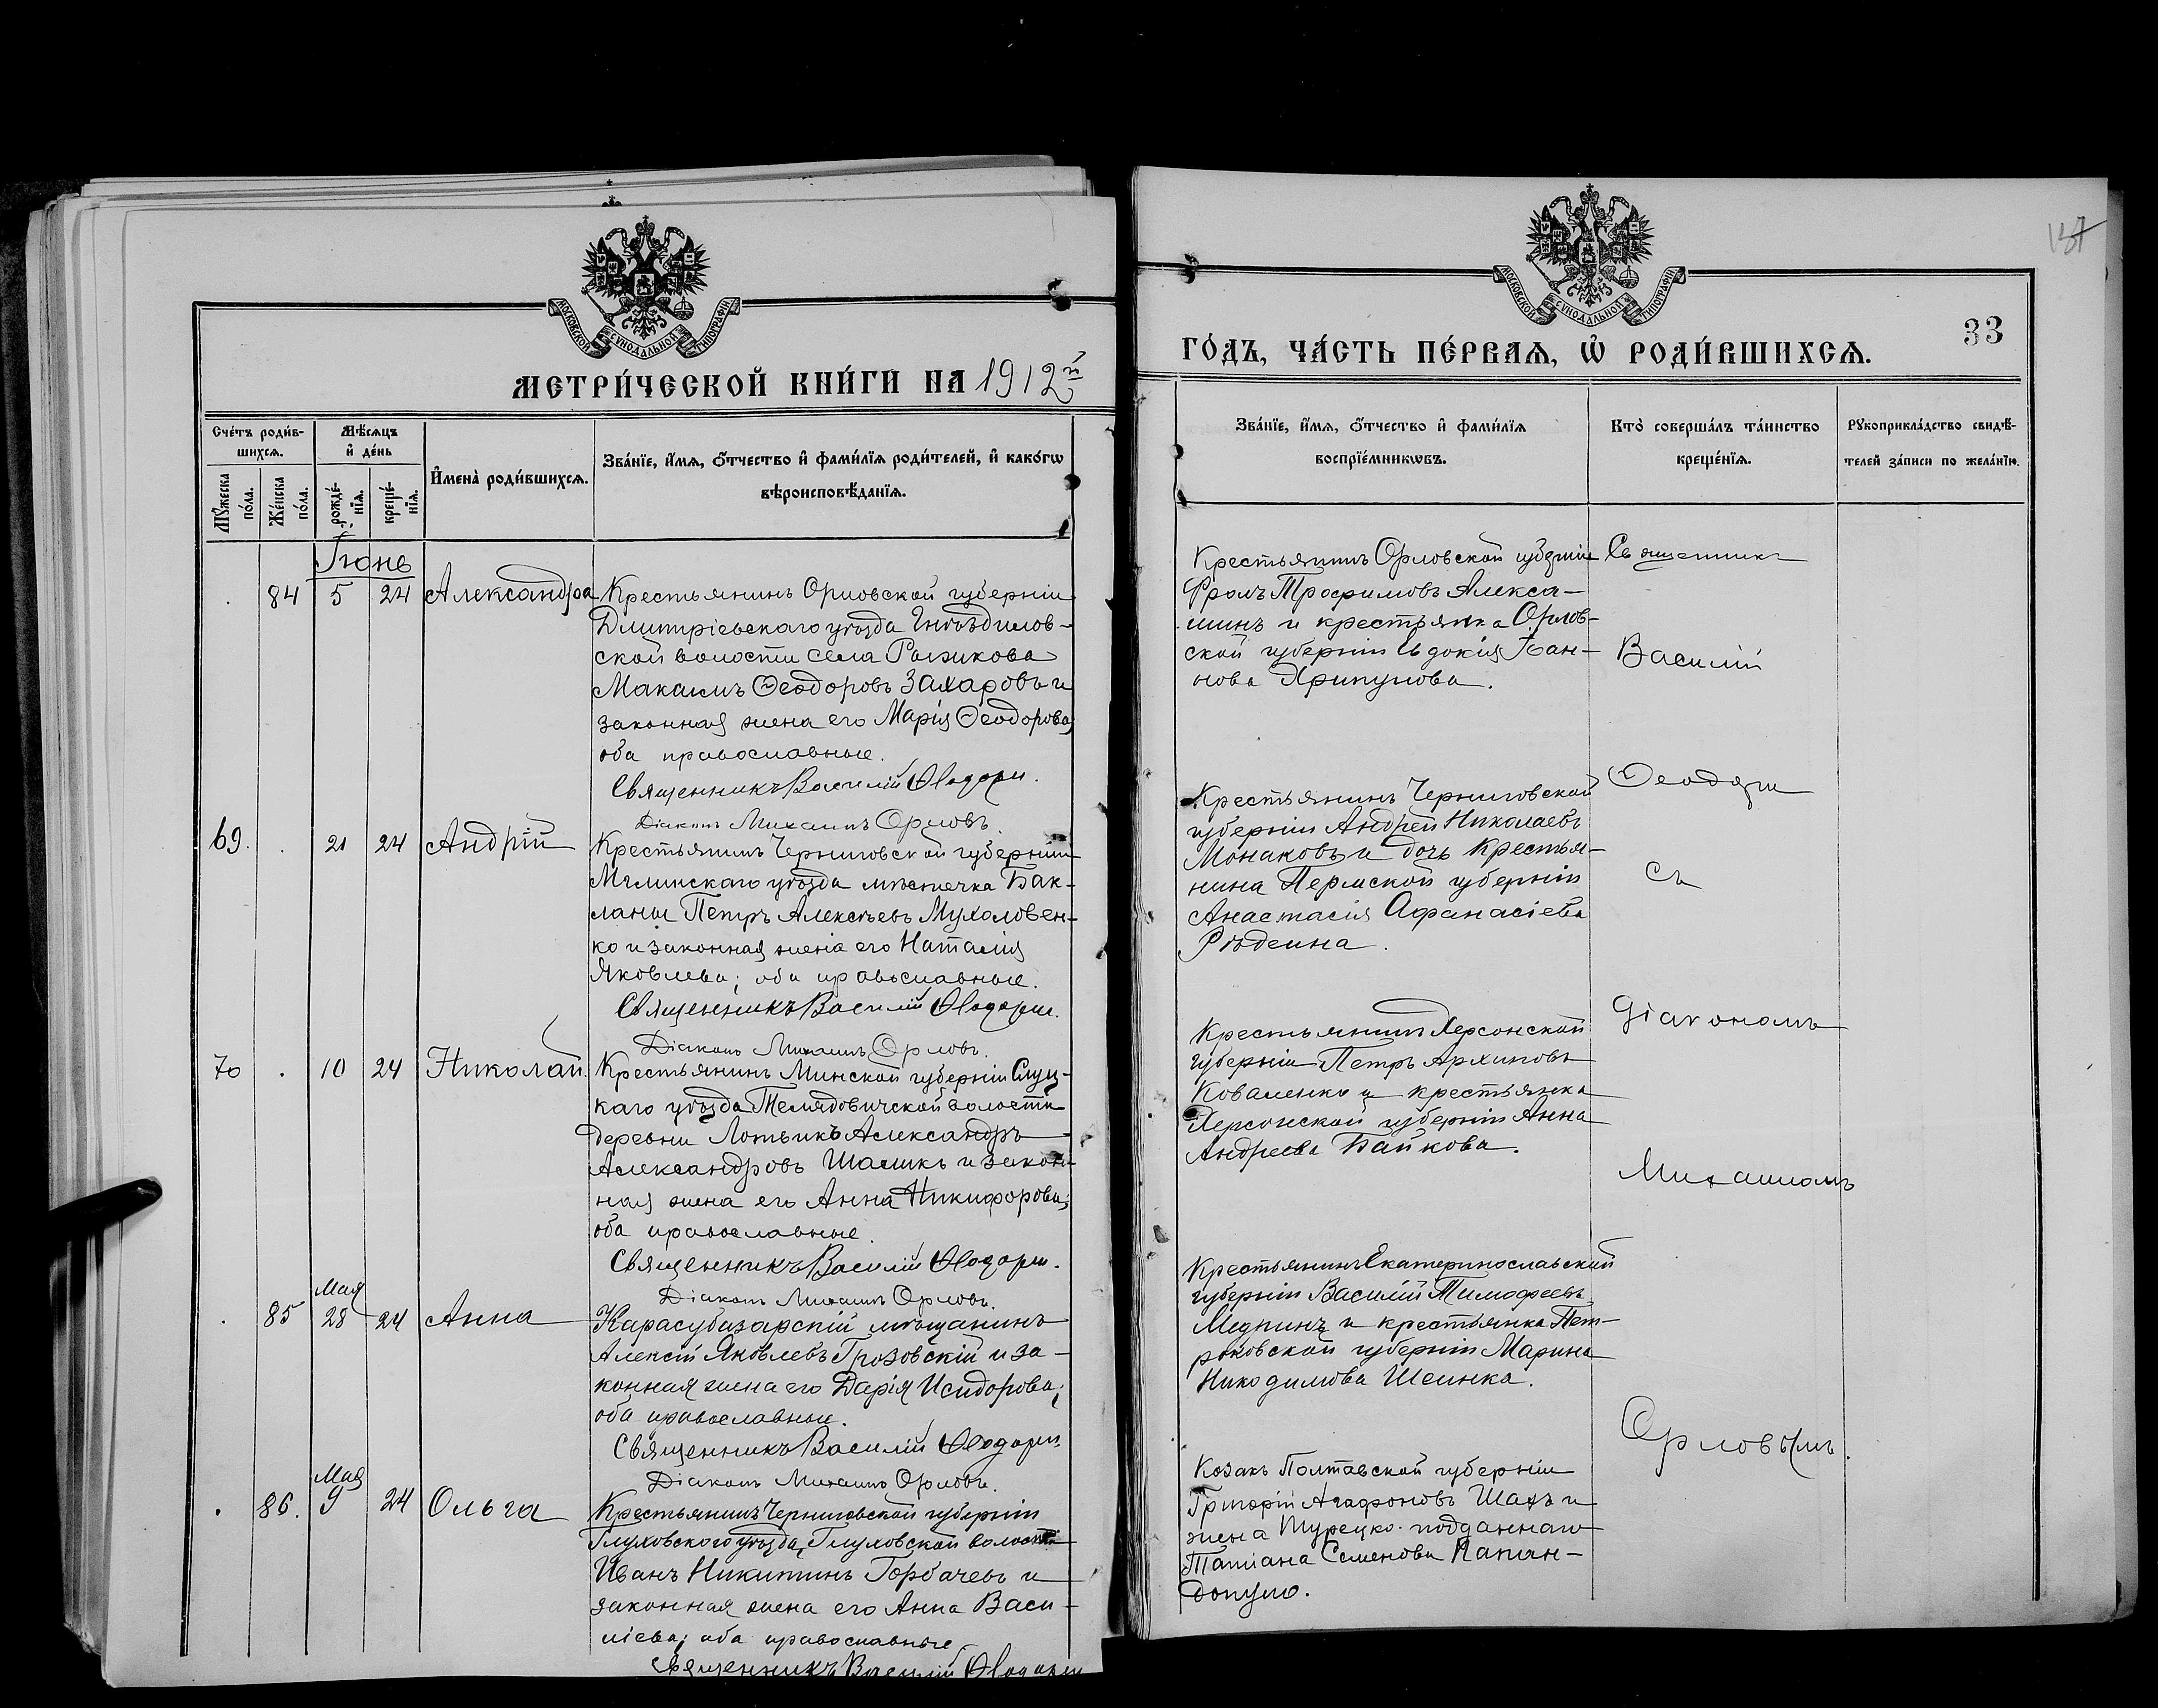 МОСКОВСКОЙ СѴНОДАЛЬНОЙ ТИПОГРАФІИ
МЕТРИ́ЧЕСКОЙ КНИ́ГИ НА 1912й
Сче́тъ роди́в-
шихсѧ.
Мѣ́сѧцъ
и҆ де́нь
Мꙋ́жеска
по́ла.
Же́нска
по́ла.
рожде́-
нїѧ.
креще́-
нїѧ.
И҆мена̀ роди́вшихсѧ.
Зва́нїе, и҆́мѧ, ѻ҆́тчество и҆ фами́лїѧ роди́телей, и҆ како́гѡ
вѣроисповѣ́данїѧ.
Іюнь
84 5 24 Александра
Крестьянинъ Орловской губерніи
Дмитріевскаго уѣзда Гнѣздилов-
ской волости села Рыжикова
Максимъ Ѳеодоровъ Захаровъ и
законная жена его Марія Ѳеодорова;
оба православные.
Священникъ Василій Ѳеодори.
Діаконъ Михаилъ Орловъ.
69. 21 24 Андрій
Крестьянинъ Черниговской губерніи
Мглинскаго уѣзда мѣстечка Бак-
ланы Петръ Алексѣевъ Мухоловен-
ко и законная жена его Наталія
Яковлева; оба православные.
Священникъ Василій Ѳеодори.
Діаконъ Михаилъ Орловъ.
70 10 24 Николай.
Крестьянинъ Минской губерніи Слуц-
каго уѣзда Телядовичской волости
деревни Лотвинъ Александръ
Александровъ Шашикъ и закон-
ная жена его Анна Никифорова;
оба православные.
Священникъ Василій Ѳеодори.
Діаконъ Михаилъ Орловъ.
Мая
85 28 24 Анна
Карасубазарскій мѣщанинъ
Алексій Яковлевъ Грозовскій и за-
конная жена его Дарія Исидорова;
оба православные.
Священникъ Василій Ѳеодори.
Діаконъ Михаилъ Орловъ.
Мая
86. 9 24 Ольга
Крестьянинъ Черниговской губерніи
Глуховского уѣзда, Глуховской волости
Иванъ Никитинъ Горбачевъ и
законная жена его Анна Васи-
ліева; оба православные
Священникъ Василій Ѳеодори
МОСКОВСКОЙ СѴНОДАЛЬНОЙ ТИПОГРАФІИ
137
33
ГО́ДЪ, ЧА́СТЬ ПЕ́РВАѦ, Ѡ҆ РОДИ́ВШИХСѦ.
Зва́нїе, и҆́мѧ, ѻ҆́тчество и҆ фами́лїѧ
воспрїе́мникѡвъ.
Кто̀ соверша́лъ та́инство
креще́нїѧ.
Рꙋкоприкла́дство свидѣ́-
телей за́писи по жела́нїю.
Крестьянинъ Орловской губерніи
Фролъ Трофимовъ Алекса-
шинъ и крестьянка Орлов-
ской губерніи Евдокія Іоан-
нова Хрипунова.
Крестьянинъ Черниговской
губерніи Андрей Николаевъ
Монаковъ и дочь крестья-
нина Пермской губерніи
Анастасія Афанасіева
Рѣдеина.
Крестьянинъ Херсонской
губерніи Петръ Архиповъ
Коваленко и крестьянка
Херсонской губерніи Анна
Андреева Байкова.
Крестьянинъ Екатеринославской
губерніи Василій Тимофеевъ
Меднинъ и крестьянка Пет-
роковской губерніи Марина
Никодимова Шеинка.
Козакъ Полтавской губерніи
Григорій Агафоновъ Шахъ и
жена Турецко-подданнаго
Татіана Семенова Папан-
допуло.
Священникъ
Василій
Ѳеодори
съ
Діакономъ
Михаиломъ
Орловымъ.